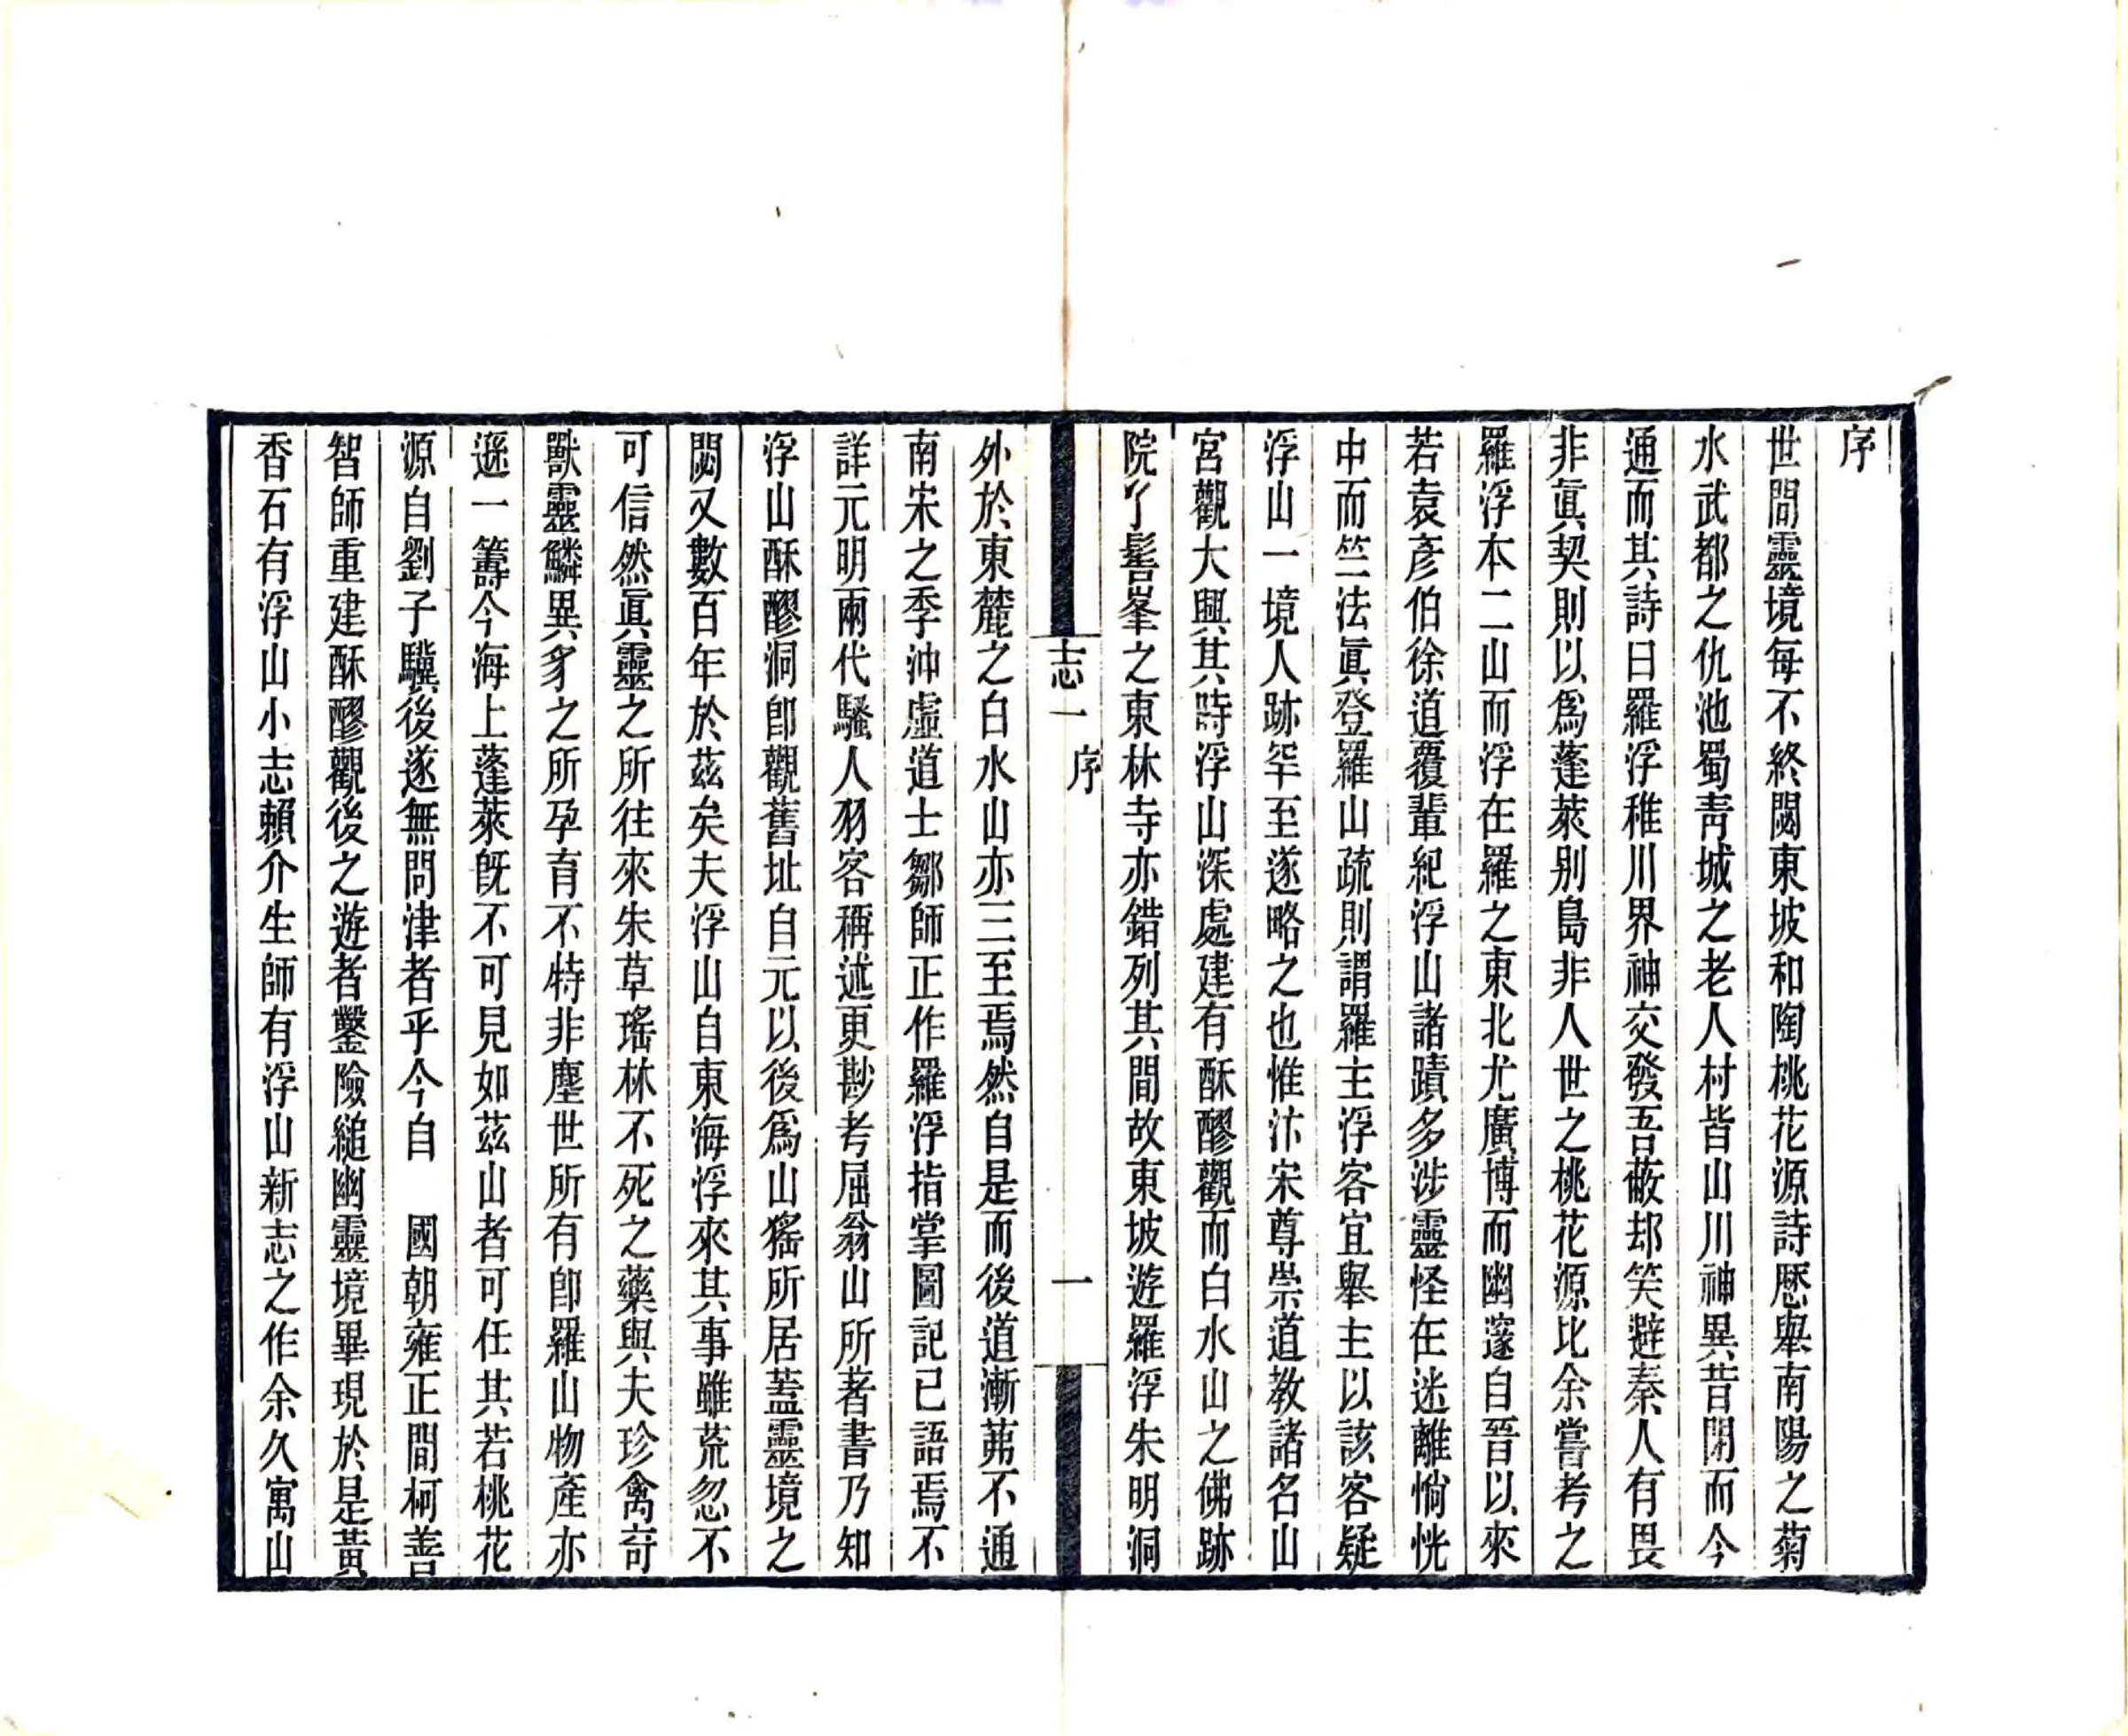 序
世間靈境每不終閟東坡和陶桃花源詩歷舉南陽之菊
水武都之仇池蜀靑城之老人村皆山川神異昔閉而今
通而其詩曰羅浮稚川界神交發吾蔽却笑避秦人有畏
非眞契則以爲蓬萊别島非人世之桃花源比余嘗考之
羅浮本二山而浮在羅之東北尤廣博而幽邃自晉以來
若袁彥伯徐道覆輩紀浮山諸蹟多涉靈怪在迷離惝恍
中而竺法眞登羅山疏則謂羅主浮客宜舉主以該客疑
浮山一境人跡罕至遂略之也惟汴宋尊崇道教諸名山
宮觀大興其時浮山深處建有酥醪觀而白水山之佛跡
院丫髻峯之東林寺亦錯列其間故東坡遊羅浮朱明洞
志一 序 一
外於東麓之白水山亦三至焉然自是而後道漸茀不通
南宋之季沖虛道士鄒師正作羅浮指掌圖記已語焉不
詳元明兩代騷人羽客稱述更尠考屈翁山所著書乃知
浮山酥醪洞卽觀舊址自元以後爲山猺所居蓋靈境之
閟又數百年於茲矣夫浮山自東海浮來其事雖荒忽不
可信然眞靈之所往來朱草瑤林不死之藥與夫珍禽奇
獸靈鱗異豸之所孕育不特非塵世所有卽羅山物產亦
遜一籌今海上蓬萊旣不可見如茲山者可任其若桃花
源自劉子驥後遂無問津者乎今自 國朝雍正間柯善
智師重建酥醪觀後之遊者鑿險縋幽靈境畢現於是黃
香石有浮山小志賴介生師有浮山新志之作余久寓山